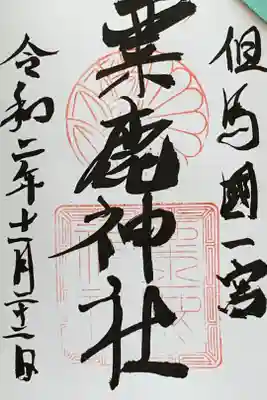 但馬國一宮
粟鹿神社
令和二年十一月二十二日